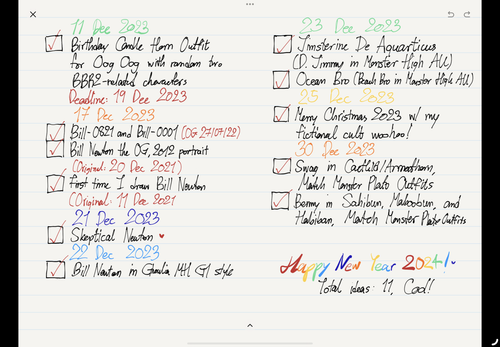 11 Dec 2023
Birthday Candle Horn Outfit
for Oog Oog with random bro
BBR2-related characters
Deadline: 19 Dec 2023
17 Dec 2023
Bill-0821 and Bill-0001 (OG 27/07/22)
Bill Newton the OG, 2012 portrait
(Original: 20 Dec 2021)
First time I draw Bill Newton
(Original: 11 Dec 2021
21 Dec 2023
Skeptical Newton
22 Dec 2023
Bill Newton in MH G1 style
23 Dec 2023
Jimsterine De Aquarticus
(D. Jimmy in Monster High AU)
Ocean Bro (Beach Bro in Monster High AU)
25 Dec 2023
Merry Christmas 2023 w/ my
fictional cults woohoo!
30 Dec 2023
Swag in
Match Monster Plato Outfits
Benny in Sahibun, Maboobun, and
Habiban, Match Monster Plato Outfits
Happy New Year 2024!
Total ideas: 11, Cool!